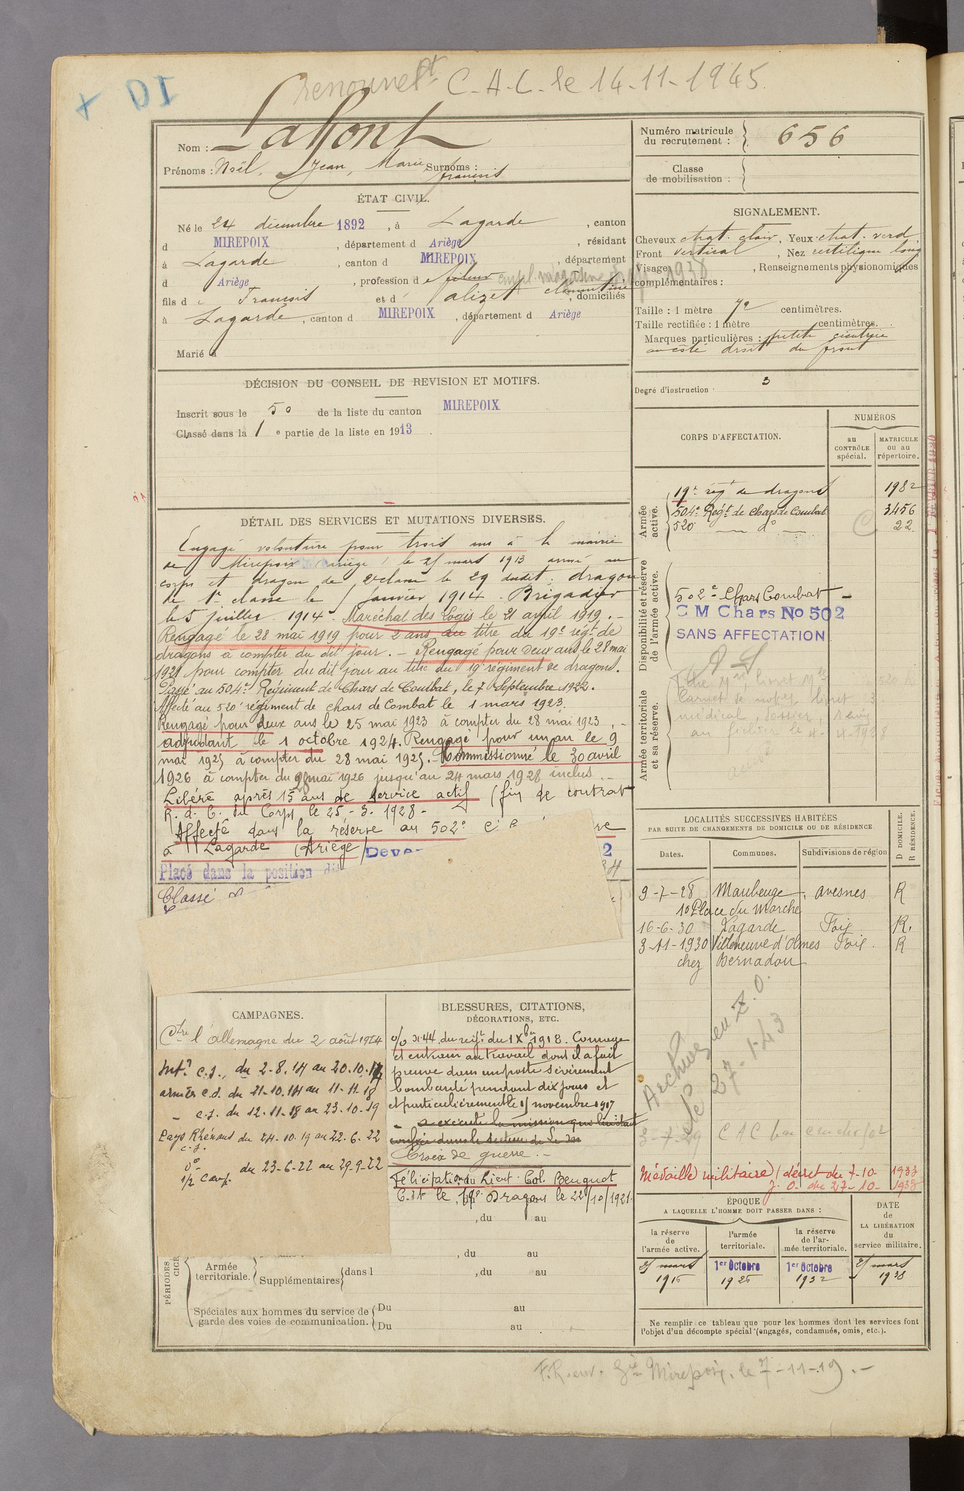 C.A.C. le 14-11-1945
Nom : Lafont
Prénoms : Noël, Jean, Marie, françois Surnoms :
ÉTAT CIVIL.
Né le 24 décembre 1892, à Lagarde, canton
d MIREPOIX, département d Ariège, résidant
à Lagarde, canton d MIREPOIX, département
d Ariège, profession d 1938
fils de François et d' alizet clémentine, domiciliés
à Lagarde, canton d MIREPOIX, département d Ariège
Marié à
DÉCISION DU CONSEIL DE REVISION ET MOTIFS.
Inscrit sous le 50 de la liste du canton MIREPOIX
Classé dans la 1 e partie de la liste en 1913.
DÉTAIL DES SERVICES ET MUTATIONS DIVERSES.
Engagé volontaire pour trois ans à la mairie
de Mirepoix (Ariège) le 25 mars 1913 arrivé au
corps et dragon de 2e classe le 29 dudit; dragon
de 1e classe le janvier 1914. Brigadier
le 5 juillet 1914. Maréchal des Logis le 21 avril 1919. -
Rengagé le 28 mai 1919 pour 2 ans au titre du 19e régt de
dragons à compter du dit jour. - Rengagé pour deux ans le 28 mai
1921 pour compter du dit jour au titre du 19e régiment de dragons.
Passé au 504e Régiment de Chars de Combat, le 7 Septembre 1922.
Affecté au 520e régiment de chars de Combat le 1 mars 1923.
Rengagé pour deux ans le 25 mai 1923 à compter du 28 mai 1923. -
adjudant le 1 octobre 1924. Rengagé pour un an le 9
mai 1925 à compter du 28 mai 1925. - Commissionné le 30 avril
1926 à compter du 28 mai 1926 jusqu'au 24 mars 1928 inclus.
Libéré après 15 ans de service actif (fin de contrat
R. d. C. du Corps le 25-3-1928 -
Affecté dans la réserve au 502e
à Lagarde (Ariège)
Placé dans la position
Classé
CAMPAGNES.
Ctre l'Allemagne du 2 août 1914
Intr c.s. du 2-8-14 au 20-10-14
armées c.d. du 21-10-14 au 11-11-18
- c.s. du 12-11-18 au 23-10-19
Pays Rhénans du 24-10-19 au 22-6-22
c.s.
do du 23-6-22 au 29-9-22
BLESSURES, CITATIONS,
DÉCORATIONS, ETC.
o/o no 144 du régt du 1 Xbre 1918. Courage
et entrain au travail dont il a fait
preuve dans un poste sévèrement
bombardé pendant dix jours et
et particulièrement le 15 novembre 1917
- a exécuté la mission qui lui était
Croix de guerre. -
Félicitation du Lieut. Col. Beuquot
Cdt le 19e Dragons le 22/10/1921
, du au
, du au
Armée
territoriale. Supplémentaires dans l , du au
Spéciales aux hommes du service de
garde des voies de communication. Du au
Du au
PÉRIODES
Numéro matricule
du recrutement : 656
Classe
de mobilisation :
SIGNALEMENT.
Cheveux chat. clair, Yeux chat. verd
Front vertical, Nez rectiligne long
Visage , Renseignements physionomiques
complémentaires :
Taille : 1 mètre 72 centimètres.
Taille rectifiée : 1 mètre centimètres.
Marques particulières : petite cicatrice
au côté droit du front
Degré d'instruction : 3
CORPS D'AFFECTATION.
NUMÉROS
au
CONTRÔLE
spécial.
MATRICULE
ou au
répertoire.
Armée
active.
19e régt de dragons 1982
504e Régt de Chars de Combat 3456
520 do 22
Disponibilité et réserve
de l'armée active.
502e Chars Combat -
C M Chars No 502
SANS AFFECTATION
Armée territoriale
et sa réserve.
LOCALITÉS SUCCESSIVES HABITÉES
PAR SUITE DE CHANGEMENTS DE DOMICILE OU DE RÉSIDENCE
Dates. Communes. Subdivisions de région
D DOMICILE.
R RÉSIDENCE.
9-7-28 Maubeuge, avesnes R
10 Place du Marché
16-6-30 Lagarde Foix R.
3-11-1930 Villeneuve d'Olmes Foix. R
chez Bernadou
Archives en Z.O.
le 27-1-43
Médaille militaire (décret du 7-10- 1933
J.O. du 27-10-
ÉPOQUE
A LAQUELLE L'HOMME DOIT PASSER DANS :
DATE
de
LA LIBÉRATION
du
service militaire.
la
réserve
de
l'armée active.
l'armée
territoriale.
la
réserve
de l'ar-
mée territoriale.
25 mars
1916
1er Octobre
1926
1er Octobre
1932
25 mars
1938
Ne remplir ce tableau que pour les hommes dont les services font
l'objet d'un décompte spécial (engagés, condamnés, omis, etc.).
Mirepoix. le 7-11-19. -